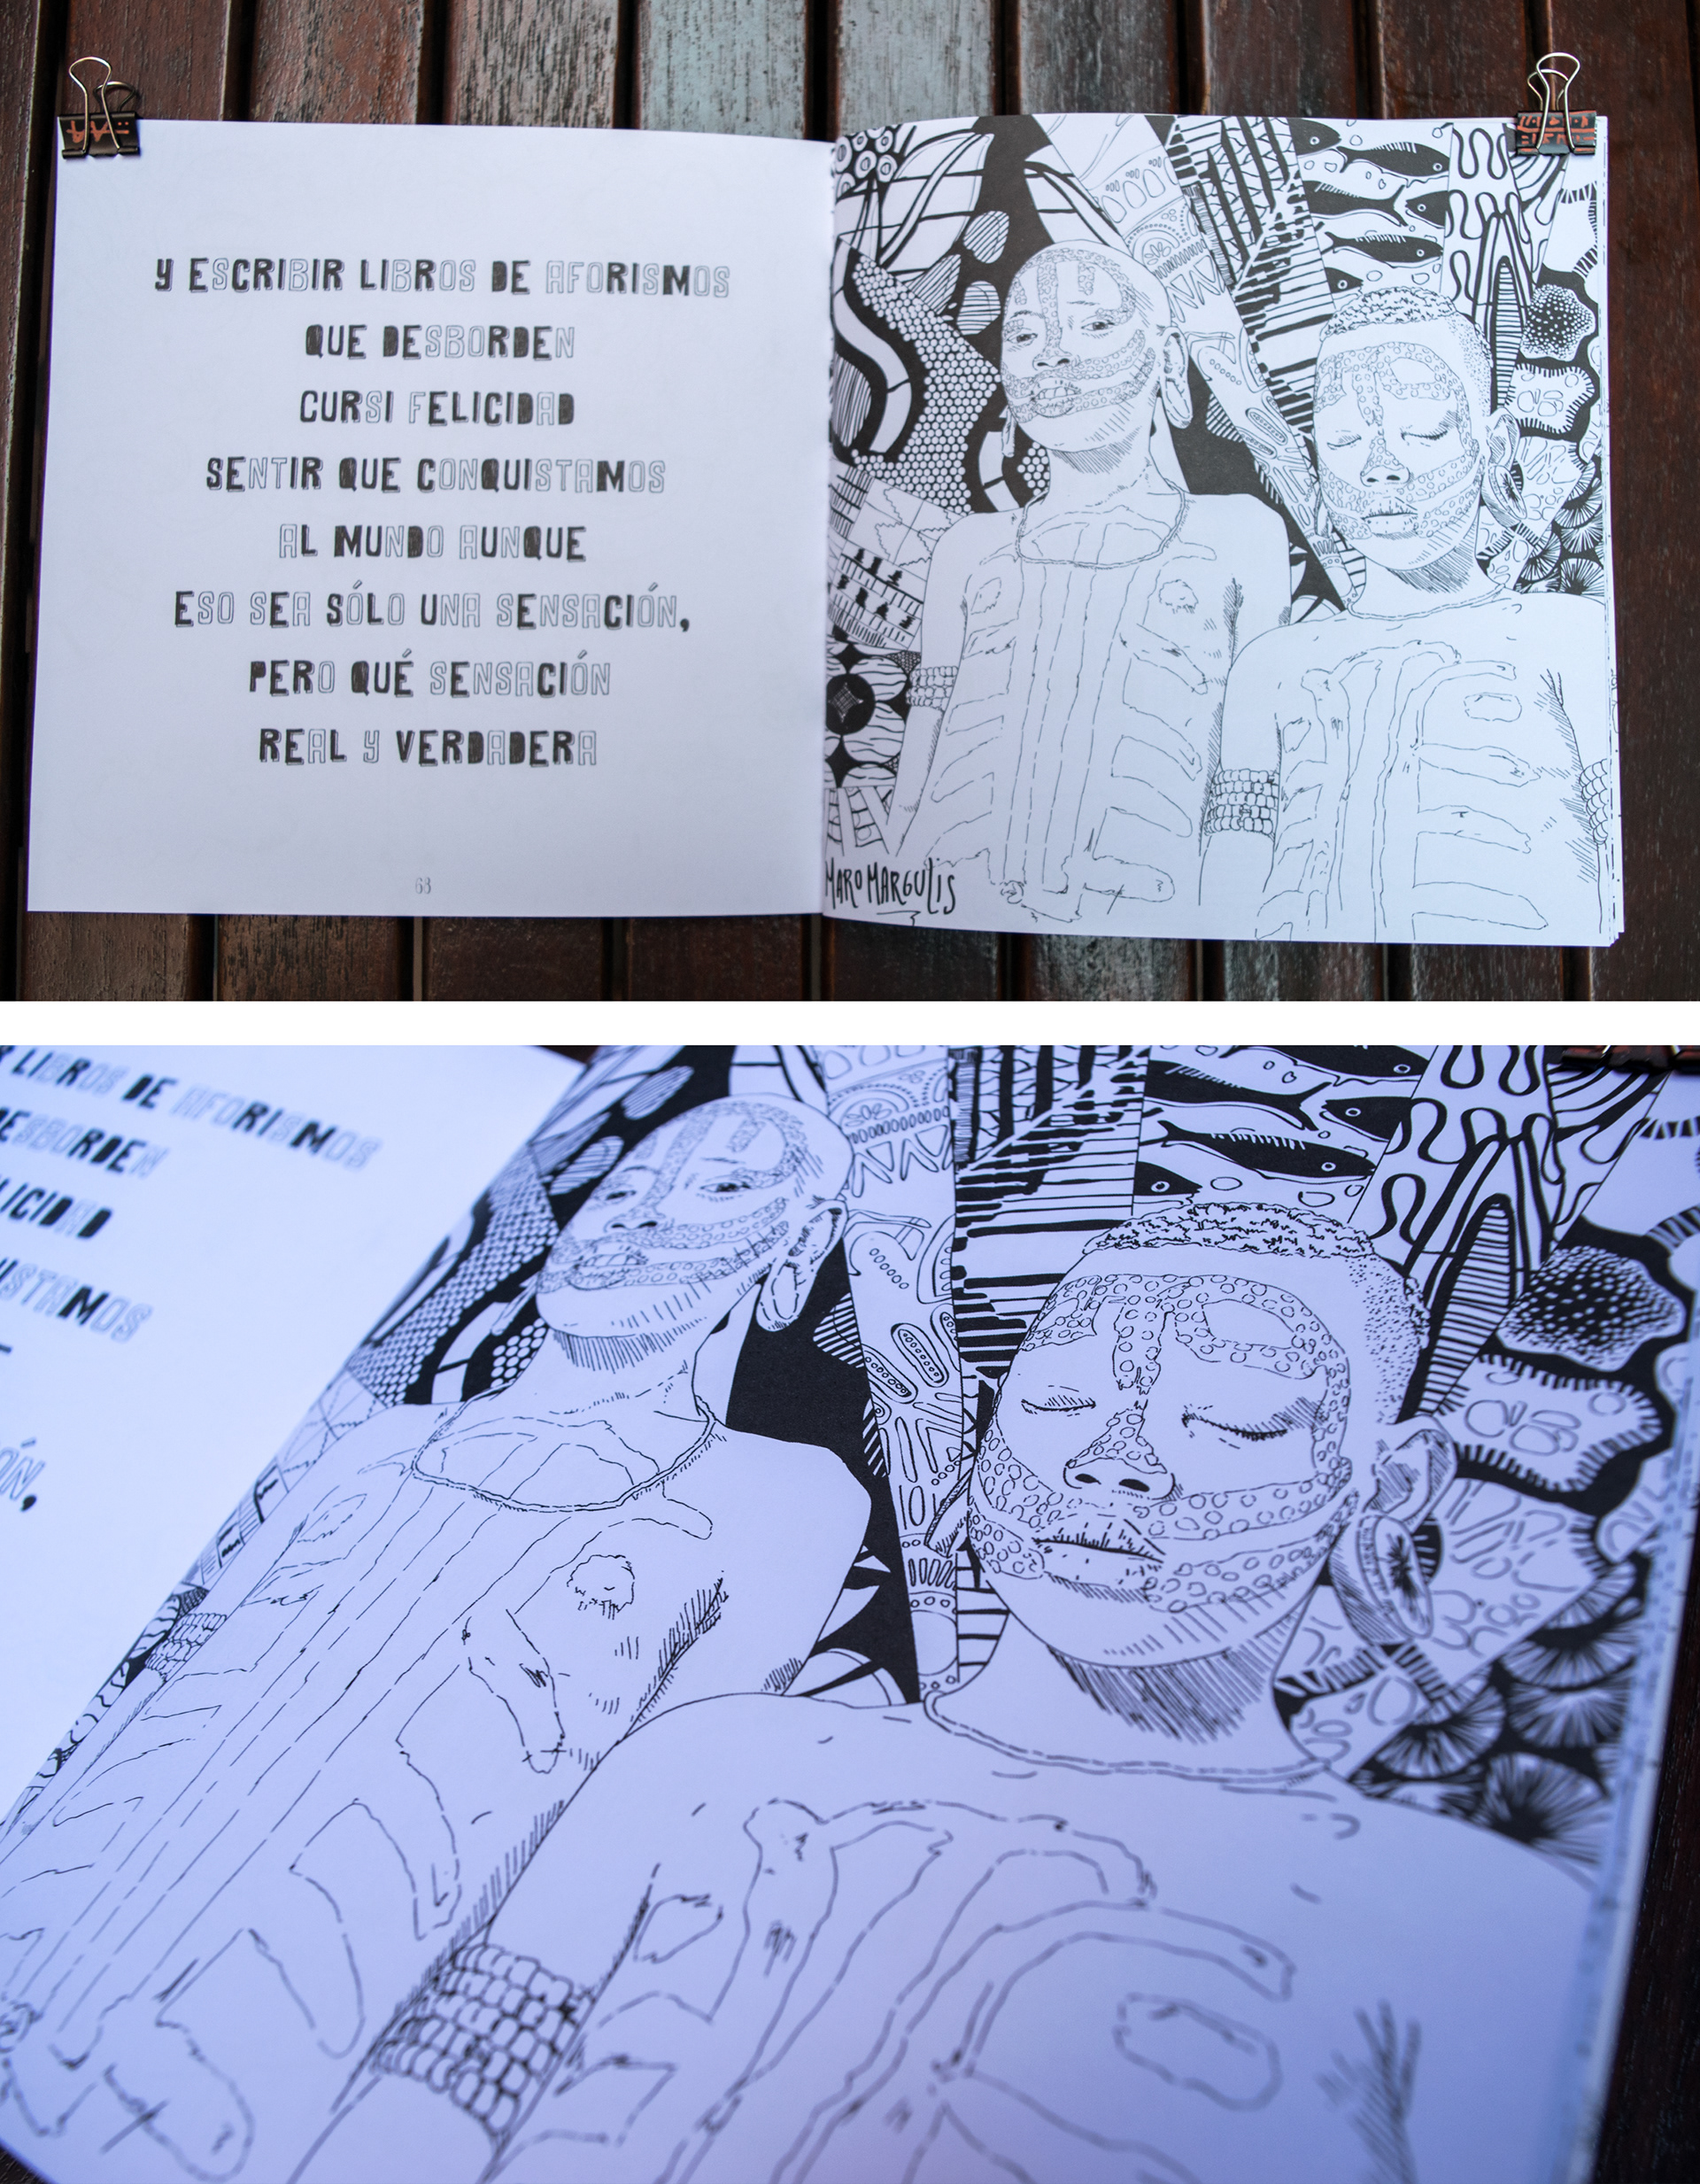 Y ESCRIBIR LIBROS DE AFORISMOS
QUE DESBORDEN
CURSI FELICIDAD
SENTIR QUE CONQUISTAMOS
AL MUNDO AUNQUE
ESO SEA SÓLO UNA SENSACIÓN,
PERO QUÉ SENSACIÓN
REAL Y VERDADERA
68
MARO MARGULIS
LIBROS DE AFORISMOS
DESBORDEN
LICIDAD
ISTAMOS
ÓN,